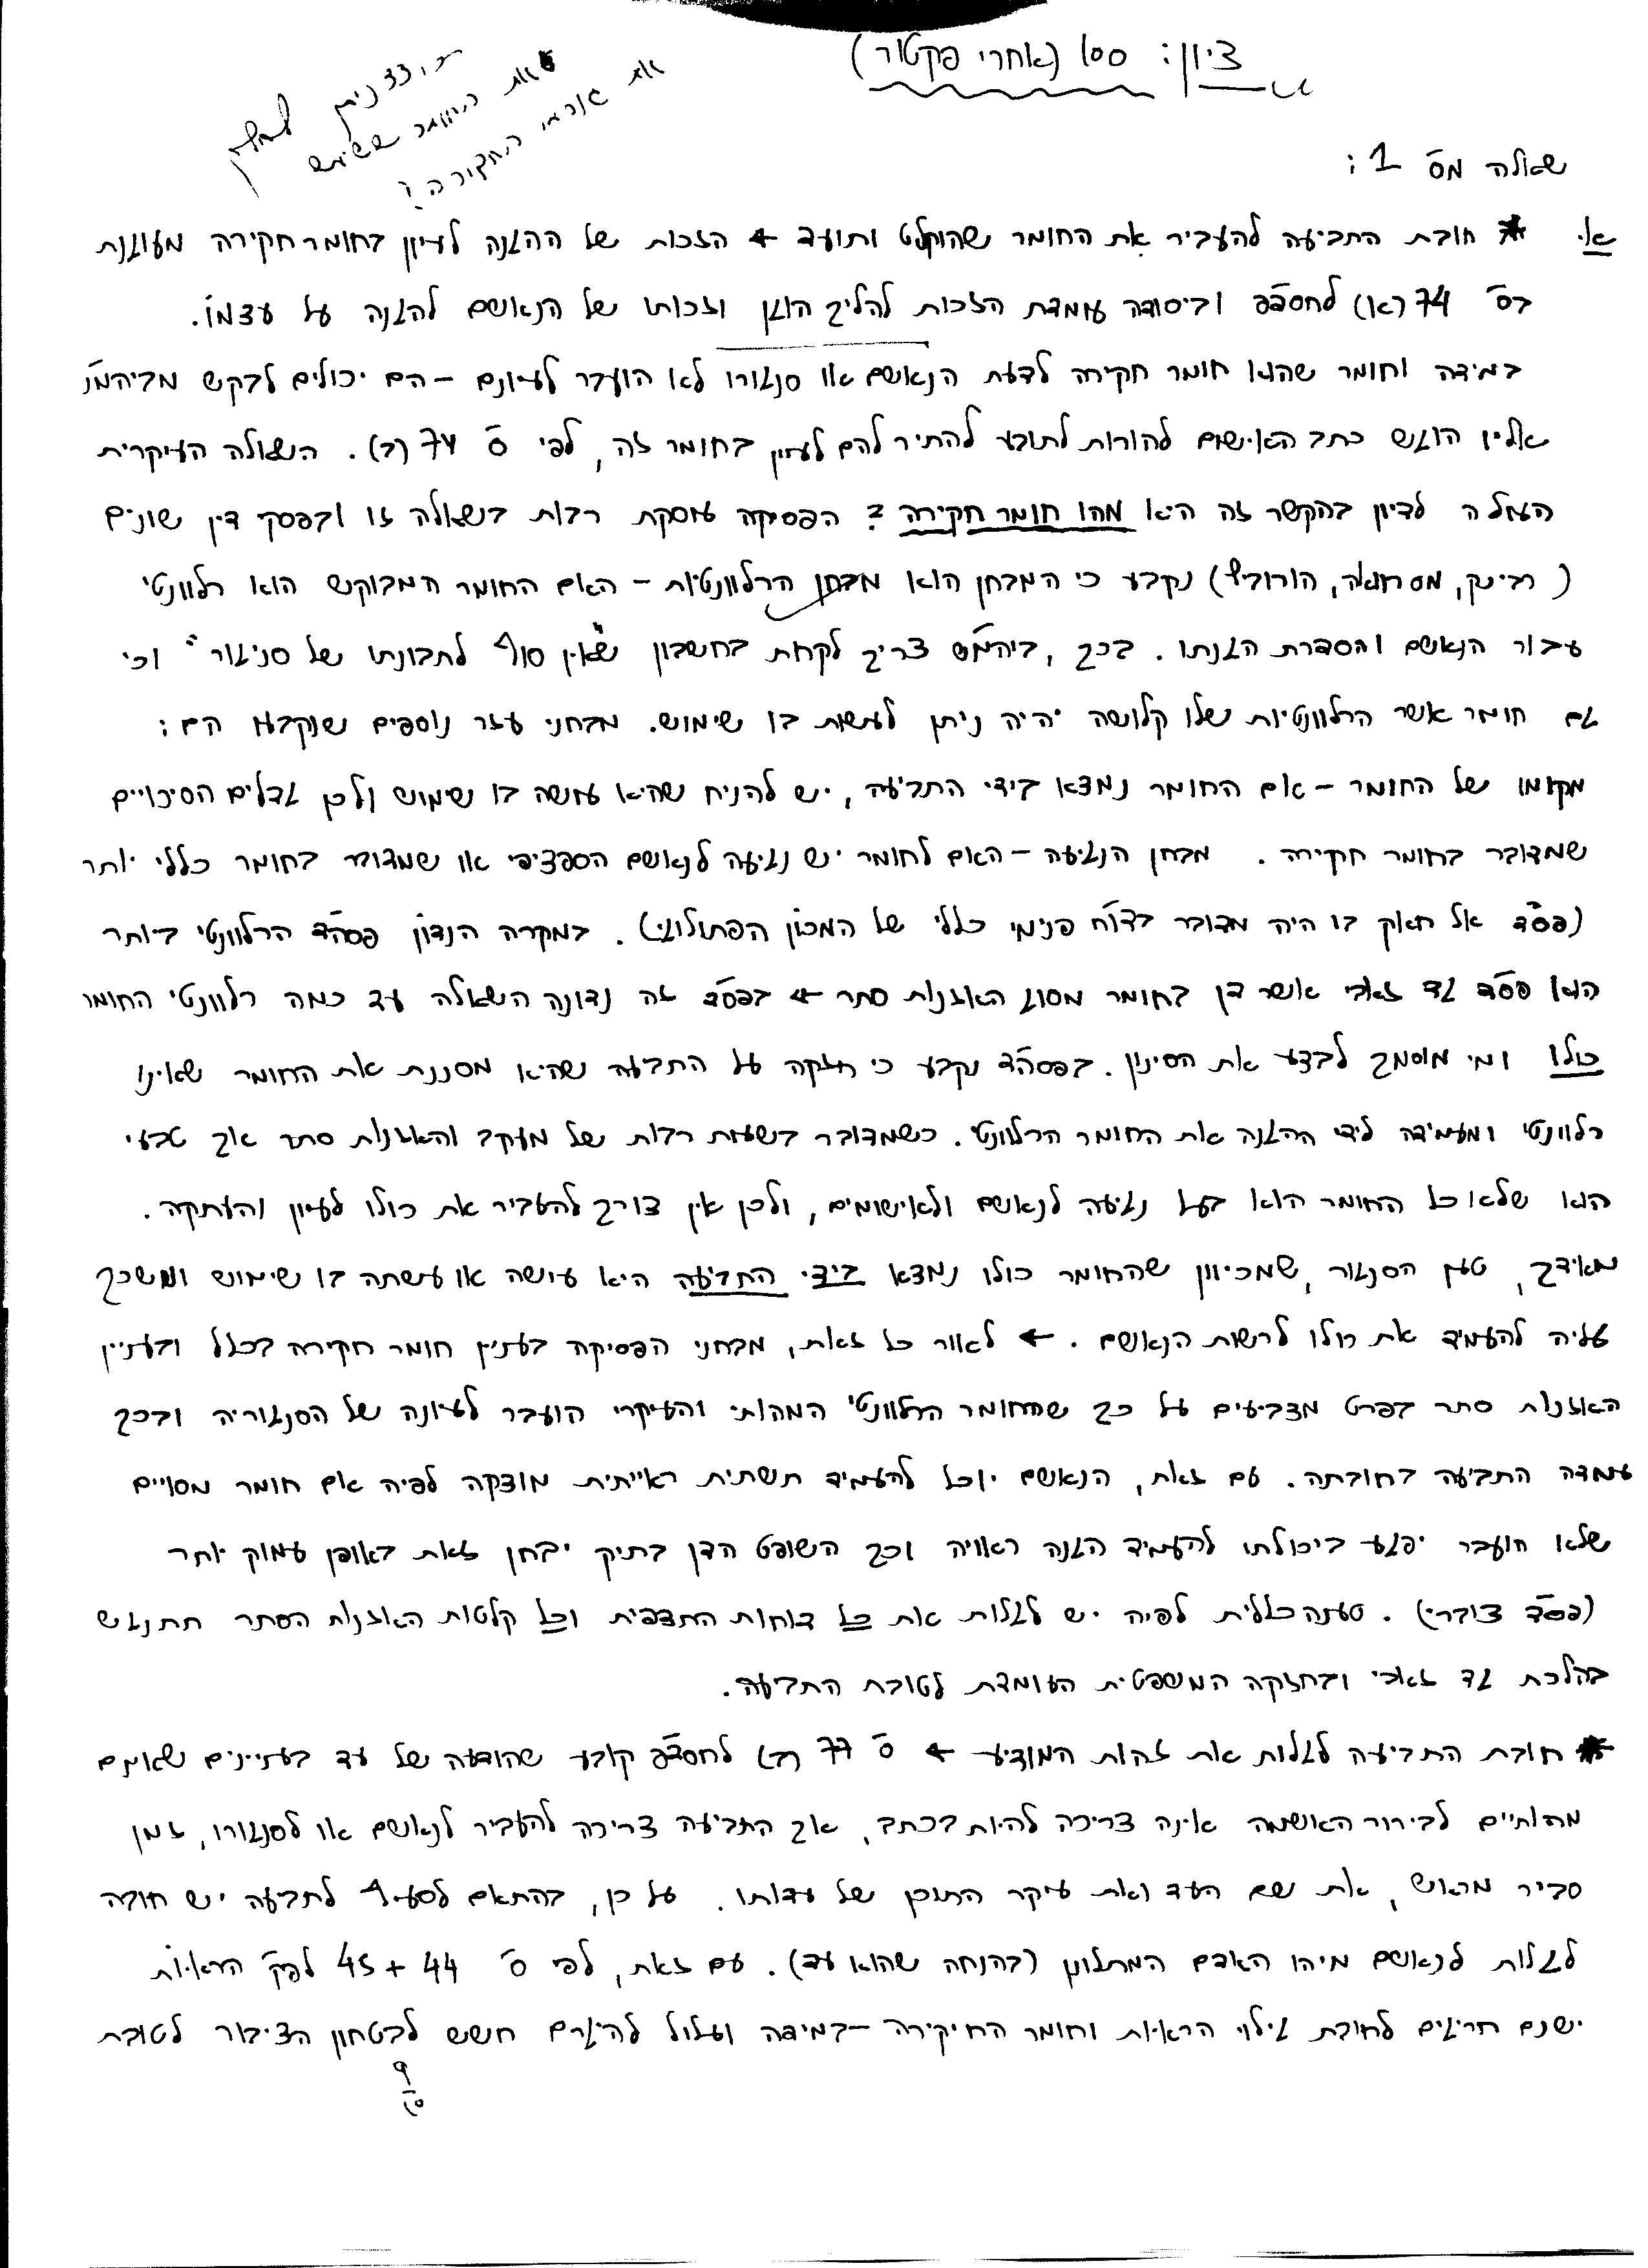 ציון: 100 (אחרי פקטור)
כיצד ניתן
את החומר ששימש
את גורמי החקירה?
שאלה מס' 1:
א. * חובת התביעה להעביר את החומר שהוקלט ותועד ← הזכות של ההגנה לעיון בחומר חקירה מעוגנת
בס' 74 (א) לחסד"פ וביסודה עומדת הזכות להליך הוגן וזכותו של הנאשם להגנה על עצמו.
במידה וחומר שהוא חומר חקירה לדעת הנאשם או סנגורו לא הועבר לעיונם - הם יכולים לבקש מביהמ"ש
אליו הוגש כתב האישום להורות לתובע להתיר להם לעיין בחומר זה, לפי ס' 74 (ב). השאלה העיקרית
העולה לדיון בהקשר זה היא מהו חומר חקירה? הפסיקה עוסקת רבות בשאלה זו ובפסקי דין שונים
(רביבק, מסרוואה, הורוביץ) נקבע כי המבחן הוא מבחן הרלוונטיות - האם החומר המבוקש הוא רלוונטי
עבור הנאשם והסברת הגנתו. בכך, ביהמ"ש צריך לקחת בחשבון ש"אין סוף לתבונתו של סניגור" וכי
גם חומר אשר הרלוונטיות שלו קלושה יהיה ניתן לעשות בו שימוש. מבחני עזר נוספים שנקבעו הם:
מקומו של החומר - אם החומר נמצא בידי התביעה, יש להניח שהיא עושה בו שימוש ולכן גדלים הסיכויים
שמדובר בחומר חקירה. מבחן הנגיעה - האם לחומר יש נגיעה לנאשם הספציפי או שמדובר בחומר כללי יותר
(פס"ד אל הוק בו היה מדובר בדו"ח פנימי כללי של המכון הפתולוגי). במקרה הנדון פסה"ד הרלוונטי ביותר
הוא פס"ד גד זאבי אשר דן בחומר מסוג האזנות סתר ← בפס"ד זה נדונה השאלה עד כמה רלוונטי החומר
כולו ומי מוסמך לבצע את הסינון. בפסה"ד נקבע כי חזקה על התביעה שהיא מסננת את החומר שאינו
רלוונטי ומעמידה לידי ההגנה את החומר הרלוונטי. כשמדובר בשעות רבות של מעקב והאזנות סתר אך טבעי
הוא שלא כל החומר הוא בעל נגיעה לנאשם ולאישומים, ולכן אין צורך להעביר את כולו לעיון והעתקה.
מאידך, טען הסנגור, שמכיוון שהחומר כולו נמצא בידי התביעה היא עושה או עשתה בו שימוש ומשכך
עליה להעמיד את כולו לרשות הנאשם. ← לאור כל זאת, מבחני הפסיקה בעניין חומר חקירה בכלל ובעניין
האזנות סתר בפרט מצביעים על כך שהחומר הרלוונטי המהותי והעיקרי הועבר לעיונה של הסנגוריה ובכך
עמדה התביעה בחובתה. עם זאת, הנאשם יוכל להעמיד תשתית ראייתית מוצקה לפיה אם חומר מסויים
שלא הועבר יפגע ביכולתו להעמיד הגנה ראויה וכך השופט הדן בתיק יבחן זאת באופן עמוק יותר
(פס"ד צוברי). טענה כללית לפיה יש לגלות את כל דוחות התצפית וכל קלטות האזנות הסתר תתנגש
בהלכת גד זאבי ובחזקה המשפטית העומדת לטובת התביעה.
* חובת התביעה לגלות את זהות המודיע ← ס' 77 (ב) לחסד"פ קובע שהודעה של עד בעניינים שאינם
מהותיים לבירור האשמה אינה צריכה להיות בכתב, אך התביעה צריכה להעביר לנאשם או לסנגורו, זמן
סביר מראש, את שם העד ואת עיקר התוכן של עדותו. על כן, בהתאם לסעיף לתביעה יש חובה
לגלות לנאשם מיהו האדם המתלונן (בהנחה שהוא עד). עם זאת, לפי ס' 44 + 45 לפק' הראיות
ישנם חריגים לחובת גילוי הראיות וחומר החקירה - במידה ועלול להיגרם חשש לבטחון הציבור לטובת